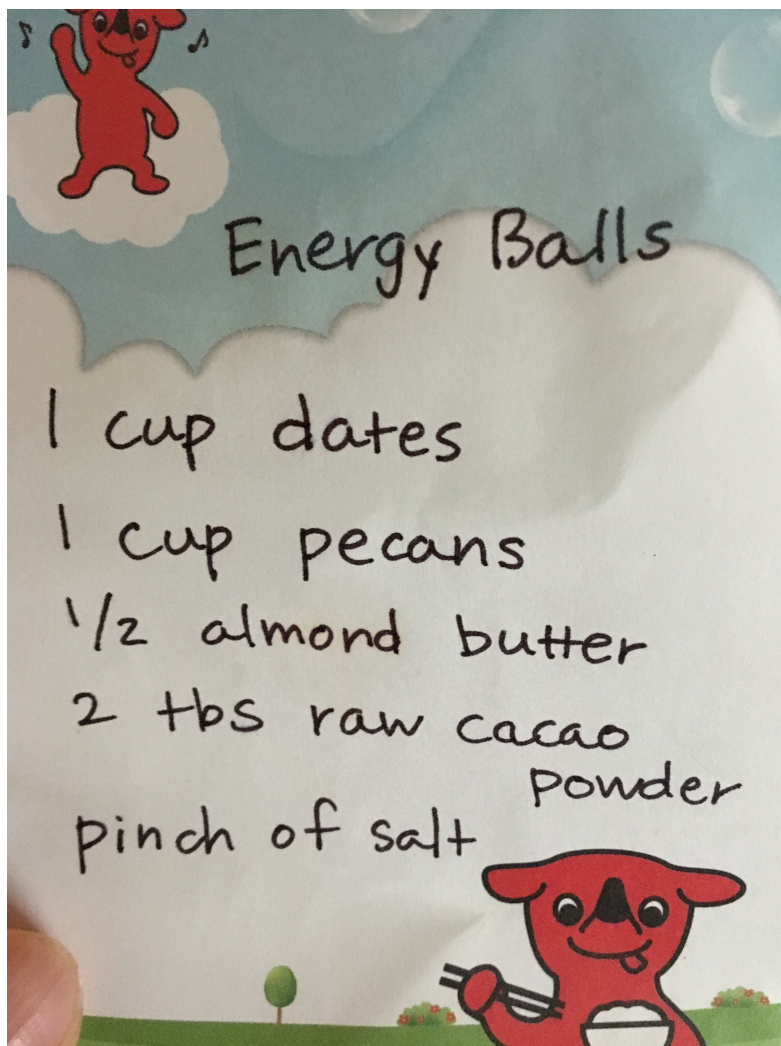 Energy Balls
1 cup dates
1 cup pecans
1/2 almond butter
2 tbs raw cacao
powder
pinch of salt